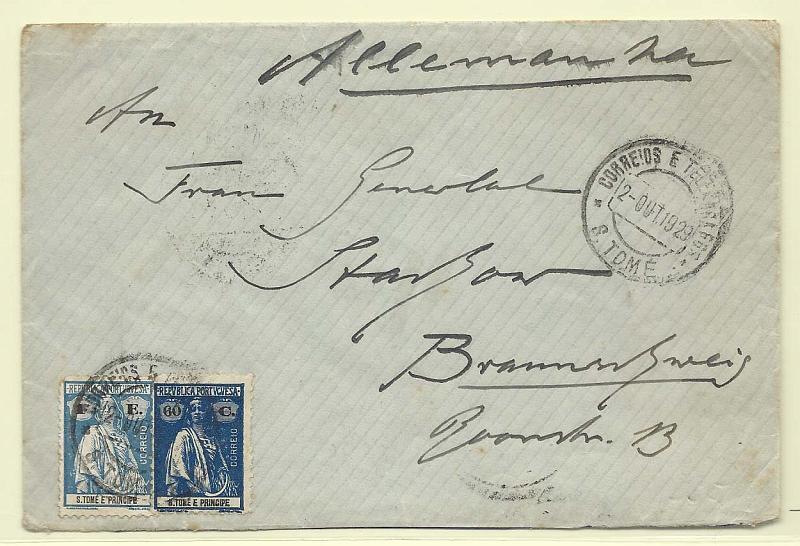 Allemanha
An
Frau General
Braunschweig
13
CORREIOS E TELEGRAFOS
2-OUT.1929
S. TOMÉ
REPUBLICA PORTUGUESA
E.
CORREIO
S. TOMÉ E PRINCIPE
REPUBLICA PORTUGUESA
60 C.
CORREIO
S. TOMÉ E PRINCIPE
CORREIOS E